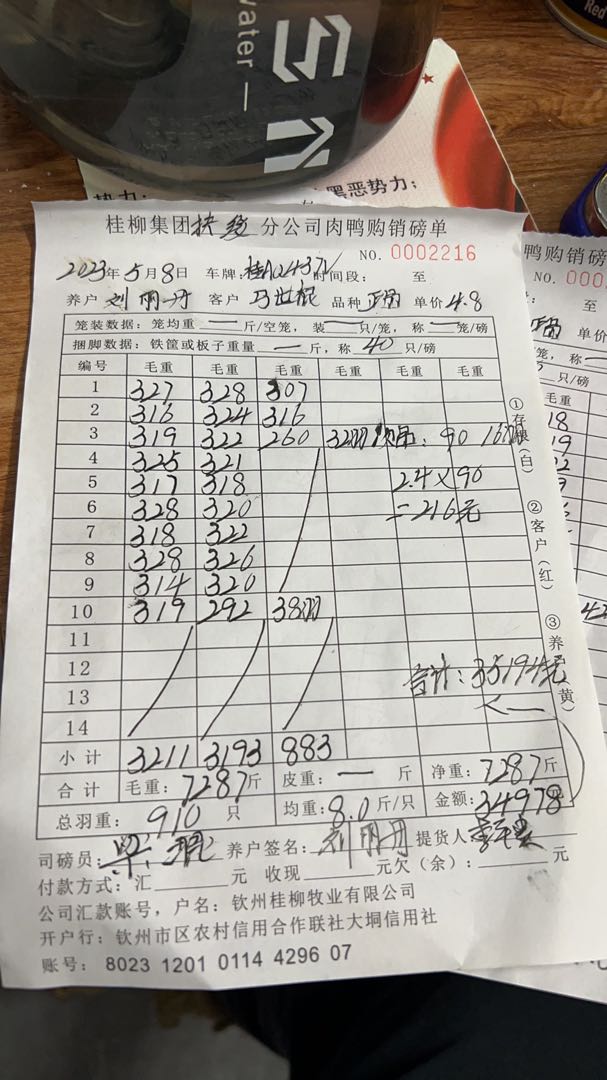 water
Red
势力：
黑恶势力：
桂柳集团扶绥分公司肉鸭购销磅单
NO. 0002216
2023年5月8日 车牌： 时间段： 至
养户 刘丽丹 客户 马世棍 品种 单价4.8
笼装数据：笼均重 一 斤/空笼，装 一 只/笼，称 一 笼/磅
捆脚数据：铁筐或板子重量 一 斤，称 40 只/磅
编号 毛重 毛重 毛重 毛重 毛重 毛重
1 327 328 307
2 316 324 316
3 319 322 260 32羽 90
4 325 321
5 317 318 2.4×90
6 328 320 =216元
7 318 322
8 328 326
9 314 320
10 319 292 38羽
11
12
13
14
合计：35194元
小计 3211 3193 883
合计 毛重：7287斤 皮重：一 斤 净重：7287斤
总羽重： 910 只 均重：8.0斤/只 金额：34978
司磅员： 养户签名：刘丽丹 提货人
付款方式：汇 元 收现 元欠（余）： 元
公司汇款账号，户名：钦州桂柳牧业有限公司
开户行：钦州市区农村信用合作联社大垌信用社
账号： 8023 1201 0114 4296 07
①存根（白）
②客户（红）
③养 黄）
鸭购销磅单
NO. 000
单价4.8
只/磅
毛重